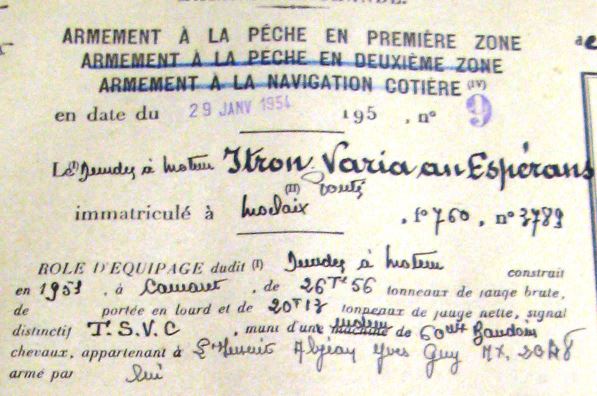 ARMEMENT À LA PÊCHE EN PREMIÈRE ZONE
ARMEMENT À LA PÊCHE EN DEUXIÈME ZONE
ARMEMENT À LA NAVIGATION COTIÈRE (IV)
en date du 29 JANV 1954 195 , n° 9
Le à Moteur Itron Varia an Espérans
(II)
immatriculé à Morlaix , f° 760, n° 3789
ROLE D'EQUIPAGE dudit (I) à Moteur construit
en 1951 , à Camaret , de 26Tx 56 tonneaux de jauge brute,
de portée en lourd et de 20T 17 tonneaux de jauge nette, signal
distinctif T.S.V.C , muni d'une machine de 60 Baudoin
chevaux, appartenant à Yves Guy Mx. 
armé par lui